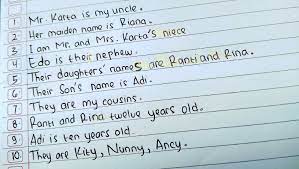 1 Mr. Karta is my uncle.
2 Her maiden name is Riana.
3 I am Mr. and Mrs. Karta's niece
4 Edo is their nephew.
5 Their daughters' names are Ranti and Rina.
6 Their Son's name is Adi.
7 They are my cousins.
8 Ranti and Rina twelve years old.
9 Adi is ten years old
10 They are Kity, Nunny, Ancy.